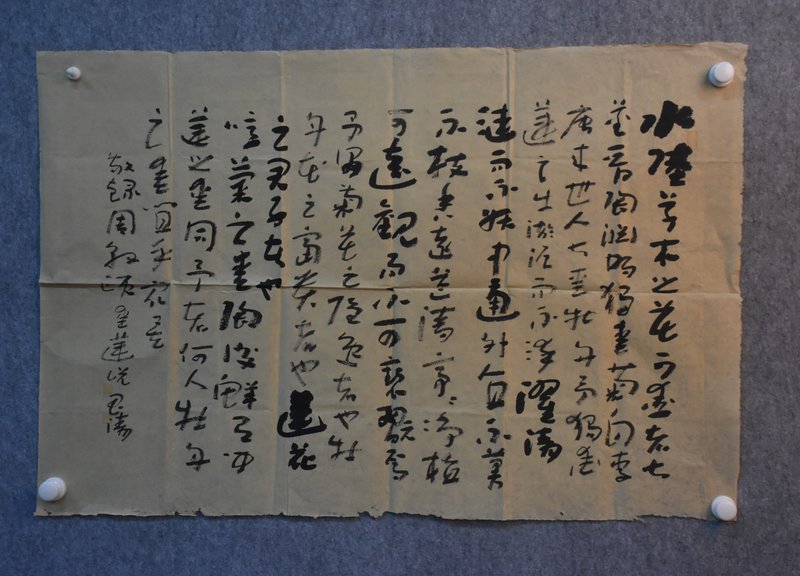 水陸草木之花可愛者甚
蕃晋陶淵明獨愛菊自李
唐来世人甚愛牡丹予獨愛
蓮之出淤泥而不染濯清
漣而不妖中通外直不蔓
不枝香遠益清亭〻净植
可遠觀而不可褻翫焉
予謂菊花之隱逸者也牡
丹花之富貴者也蓮花
之君子者也
噫菊之愛陶後鮮有聞
蓮之愛同予者何人牡丹
之愛宜乎衆矣
敬録周敦颐愛蓮説